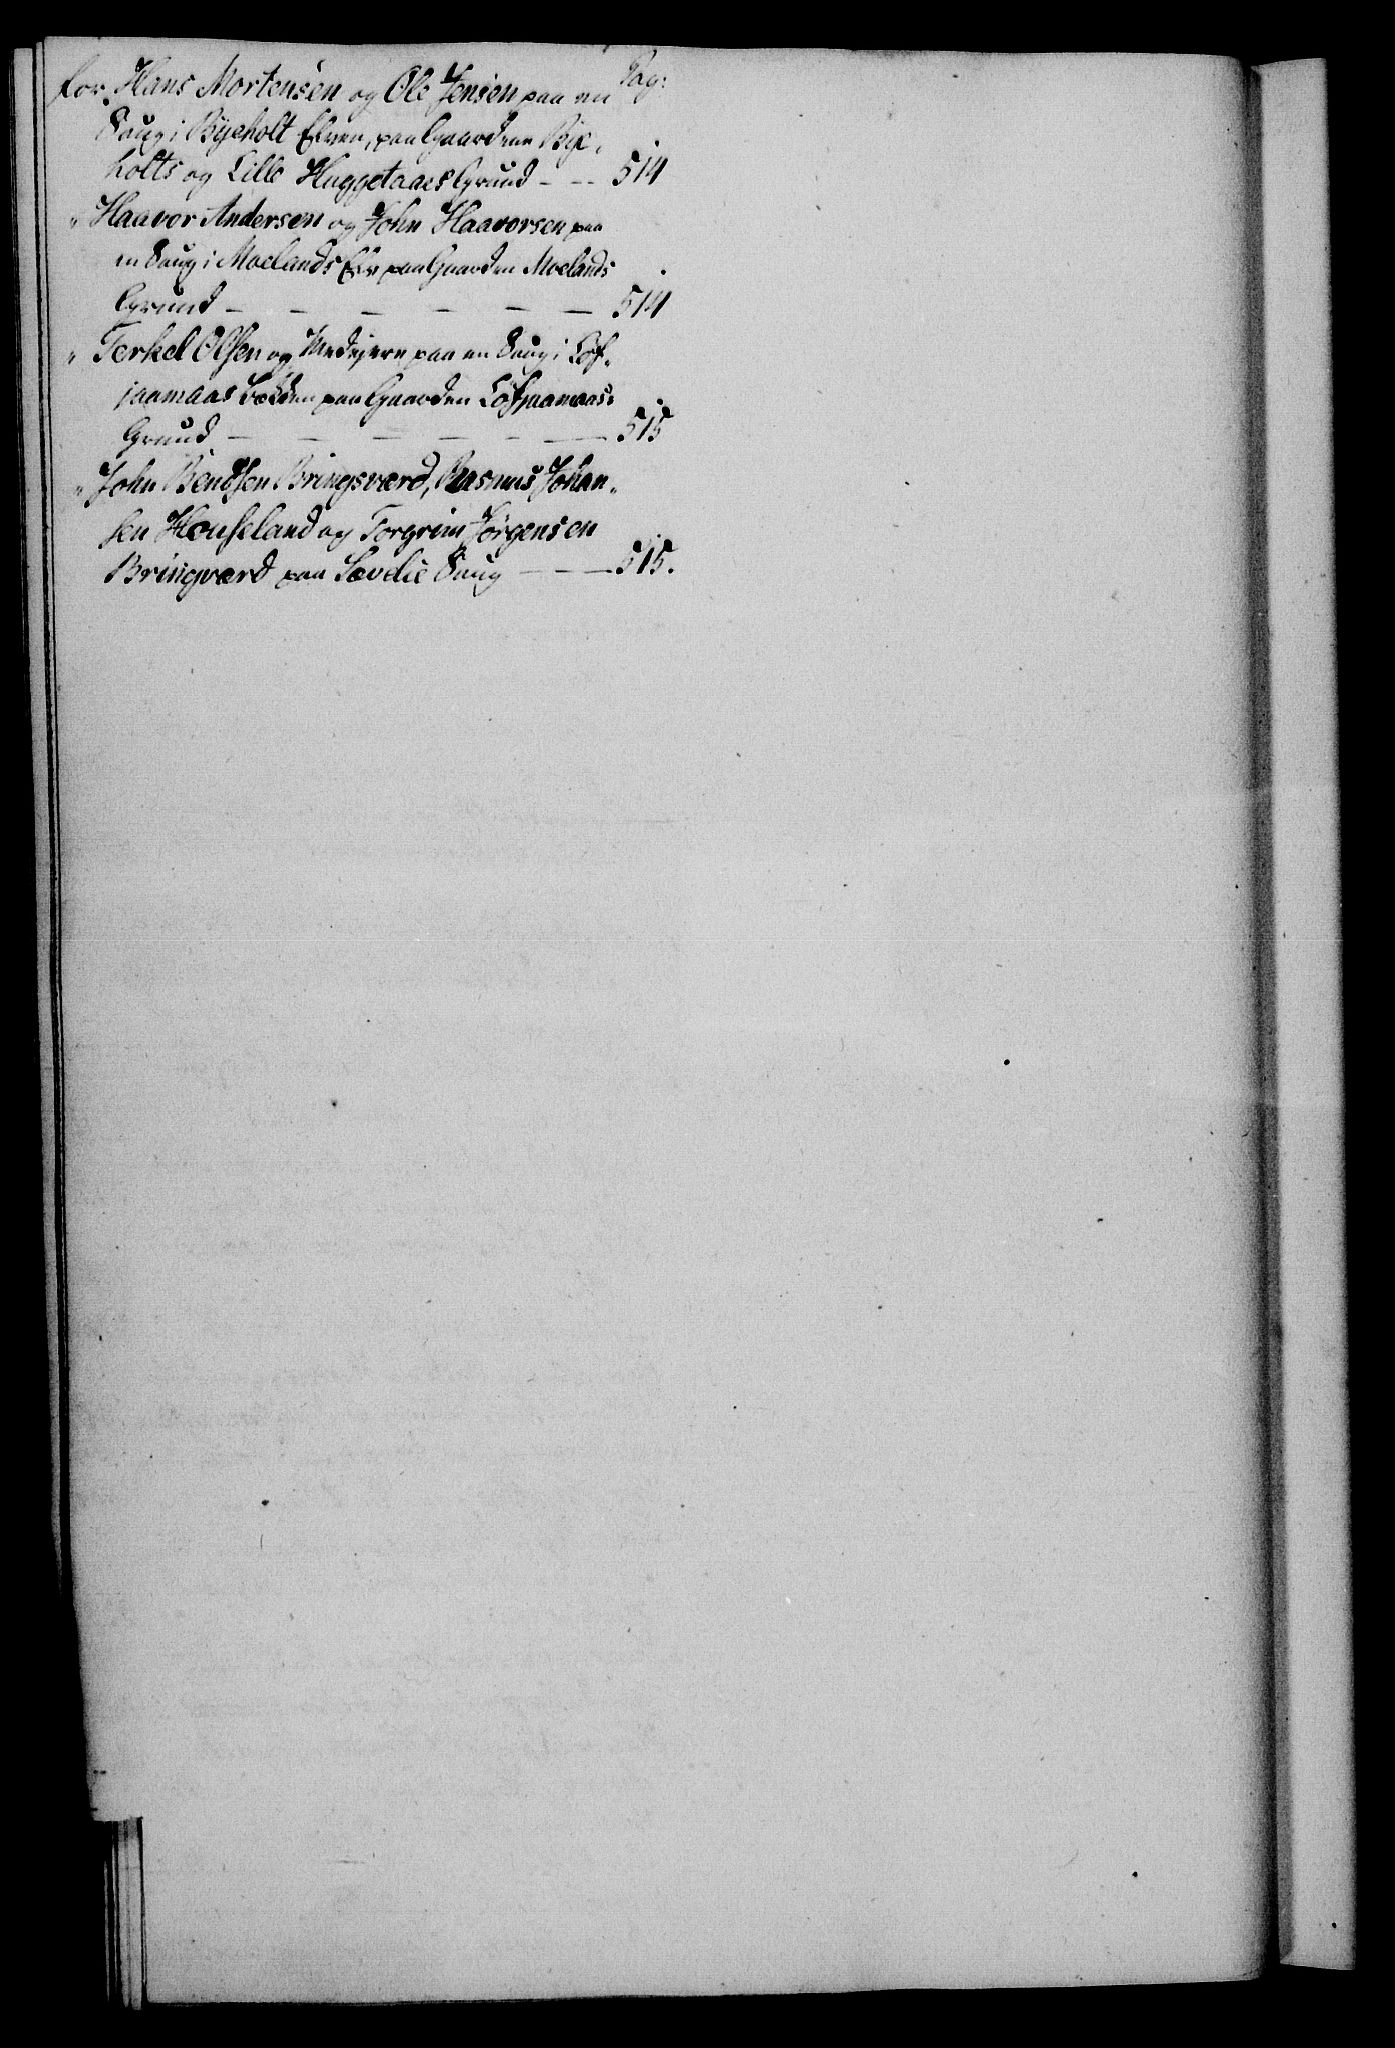 Pag:
for Hans Mortensen og Ole Jensen paa en
Saug i Byeholt Elven, paa Gaardene Bye,
holts og Lille Huggetaaes Grund - - - 514
" Haavor Andersen og John Haavorsen paa
en Saug i Moelands Elv paa Gaarden Moelands
Grund - - - - - - 514
" Terkel Olsen og Medejere paa en Saug i Løf,
jaamaas Bekken paa Gaarden Løfjaamaas:
Grund - - - - - - 515
" John Bendsen Bringsværd, Rasmus Johan,
sen Houseland og Torgrim Jørgensen
Bringværd paa Sævelie Saug - - - 515.